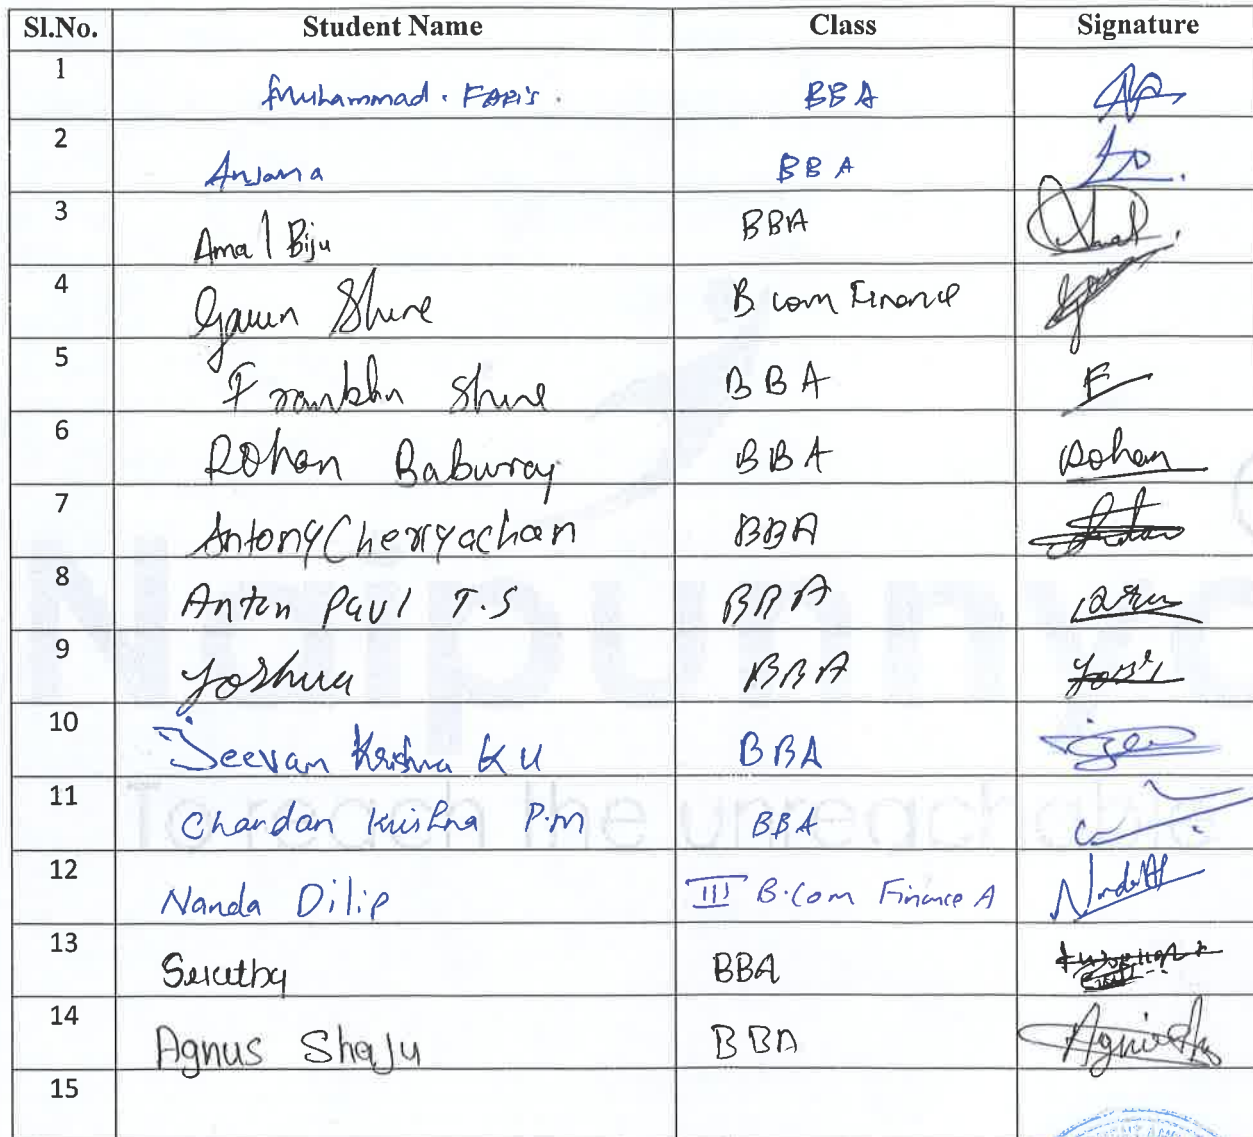 Sl.No. Student Name Class Signature
1 Muhammad. Faris. BBA
2 Anjana BBA
3 Amal Biju BBA
4 Gavin Shine B.com Finance
5 Franklin Shine BBA
6 Rohan Baburaj BBA Rohan
7 Antony Cherryachan BBA
8 Anton Paul T.S BBA
9 Joshua BBA
10 Jeevan Krishna K U BBA
11 Chandan Krishna P.M BBA
12 Nanda Dilip III B.Com Finance A
13 BBA
14 Agnus Shaju BBA
15
Naipunnya
To reach the unreachable